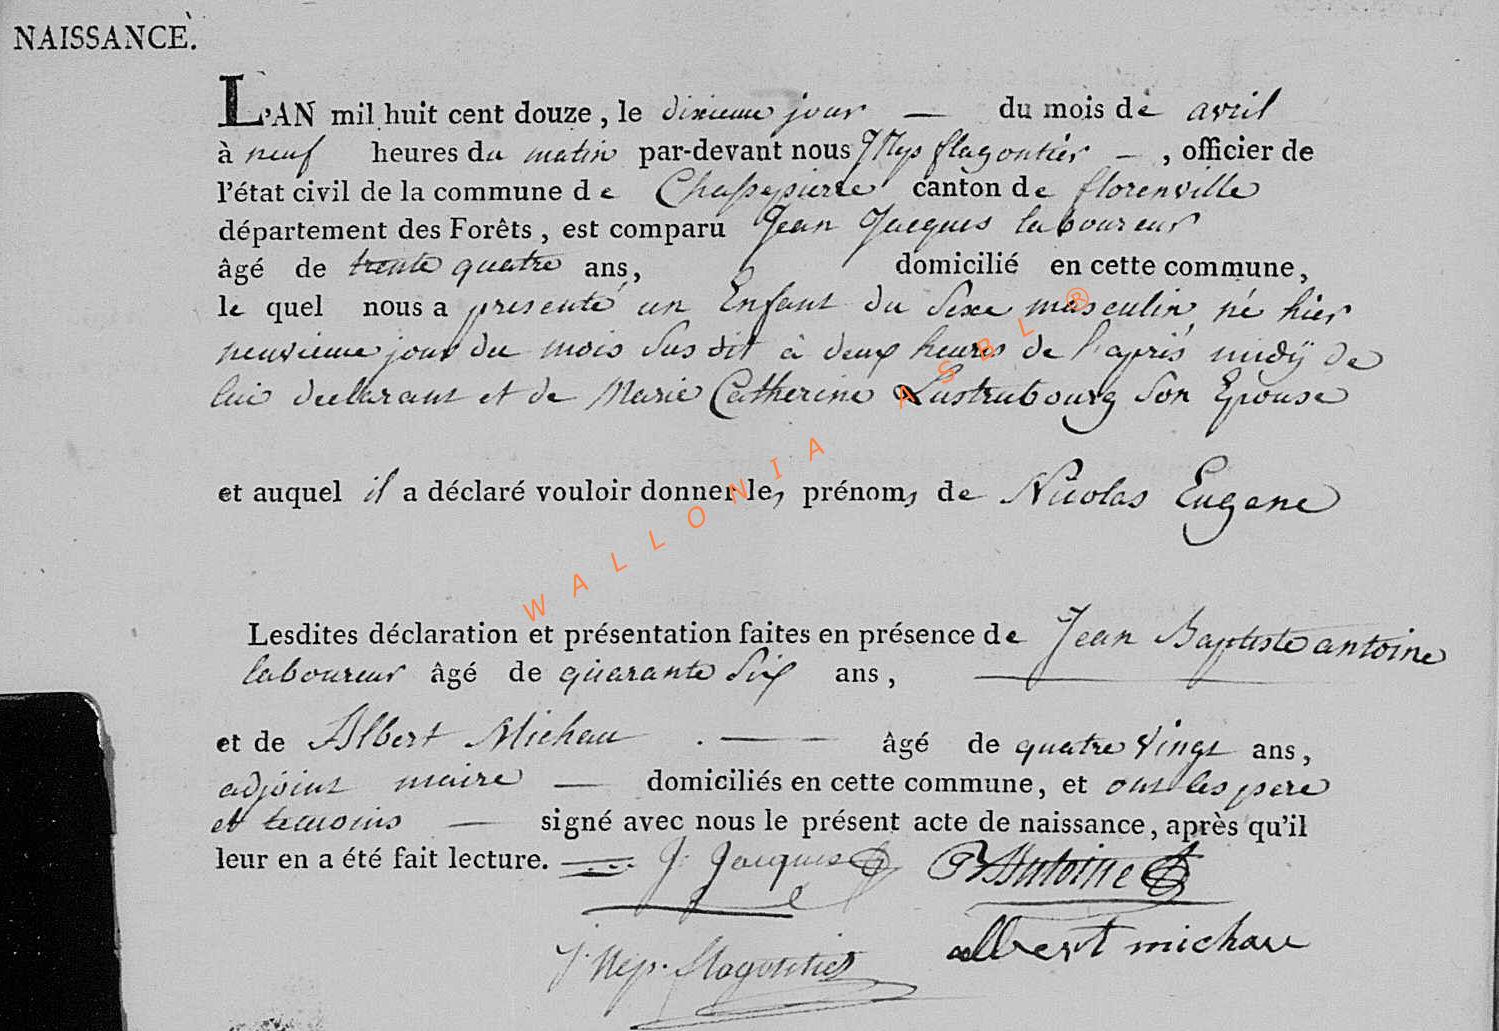 NAISSANCE.
L'AN mil huit cent douze, le dixieme jour — du mois de avril
à neuf heures du matin par-devant nous J Nep flagontier — , officier de
l'état civil de la commune de Chassepierre canton de florenville
département des Forêts, est comparu Jean Jacques laboureur
âgé de trente quatre ans, domicilié en cette commune,
le quel nous a presenté un Enfant du Sexe masculin, né hier
neuvieme jour du mois Susdit à deux heures de l'aprés midÿ de
lui declarant et de Marie Catherine Lustrubourg Son Epouse
et auquel il a déclaré vouloir donner les prénoms de Nicolas Eugene
Lesdites déclaration et présentation faites en présence de Jean Baptiste antoine
laboureur âgé de quarante Six ans,
et de Albert Michau . — âgé de quatre vingt ans,
adjoint maire — domiciliés en cette commune, et ont les pere
et temoins — signé avec nous le présent acte de naissance, après qu'il
leur en a été fait lecture. J. Jacques Antoine
J. Nep. flagontier albert michau
WALLONIA ASBL ®